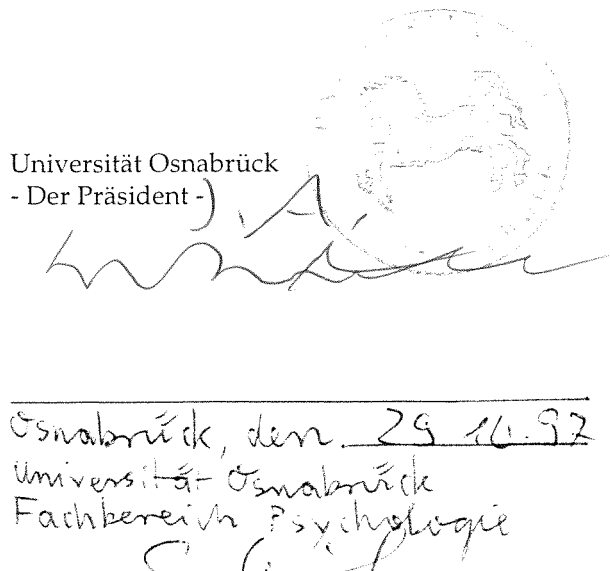 Universität Osnabrück
- Der Präsident -
Osnabrück, den 29 10.97
Universität Osnabrück
Fachbereich Psychologie